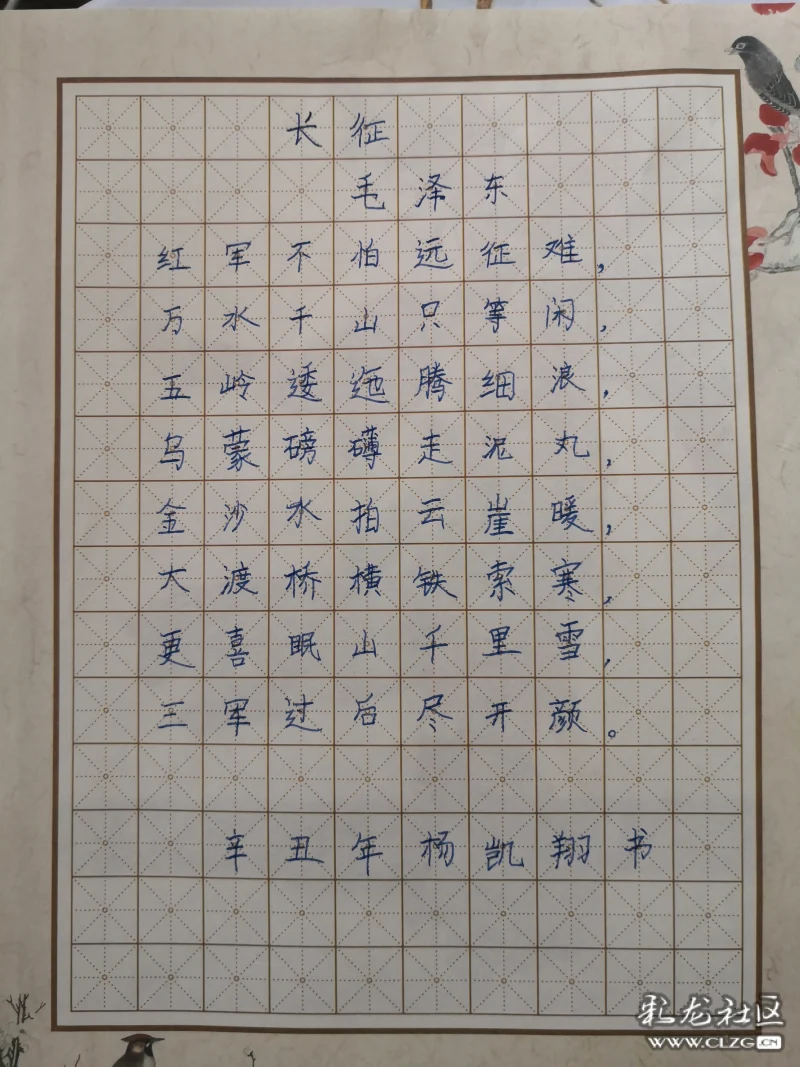 长征
毛泽东
红军不怕远征难，
万水千山只等闲，
五岭逶迤腾细浪，
乌蒙磅礴走泥丸，
金沙水拍云崖暖，
大渡桥横铁索寒，
更喜眠山千里雪，
三军过后尽开颜。
辛丑年杨凯翔书
彩龙社区
www.CLZG.CN